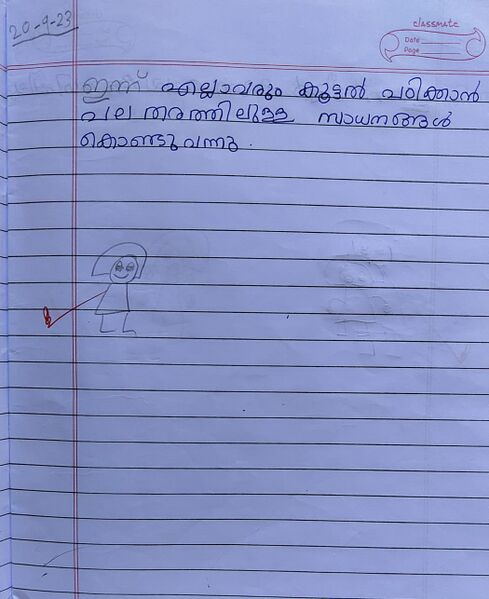 20-9-23
classmate
Date
Page
ഇന്ന് എല്ലാവരും കൂട്ടൽ പഠിക്കാൻ
പല തരത്തിലുള്ള സാധനങ്ങൾ
കൊണ്ടുവന്നു.